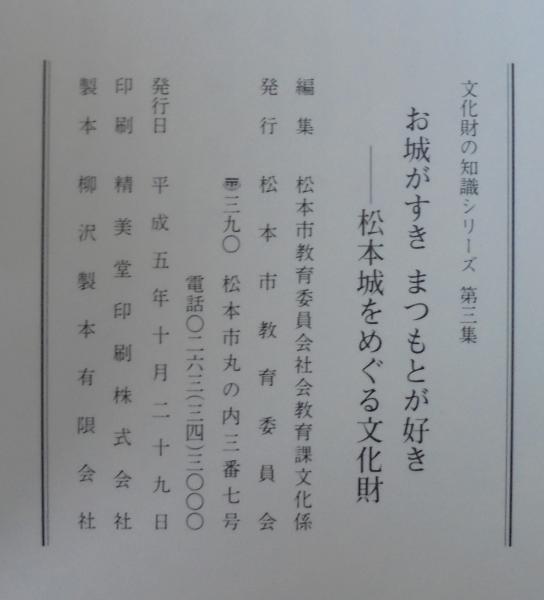 文化財の知識シリーズ 第三集
お城がすき まつもとが好き
――松本城をめぐる文化財
編集 松本市教育委員会社会教育課文化係
発行 松本市教育委員会
〠三九〇 松本市丸の内三番七号
電話〇二六三(三四)三〇〇〇
発行日 平成五年十月二十九日
印刷 精美堂印刷株式会社
製本 柳沢製本有限会社